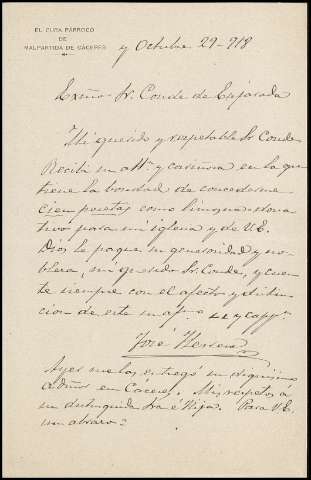 EL CURA PÁRROCO
DE
MALPARTIDA DE CÁCERES
y Octubre 29-918
Exmo Sr. Conde de
Mi querido y respetable Sr. Conde
Recibí su att. y cariñosa en la que
tiene la bondad de concederme
cien pesetas como limosna o dona
tivo para mi iglesia y de V.E.
Dios le pague su generosidad y no-
bleza, mi querido Sr. Conde, y cuen
te siempre con el afecto y distin
ción de este su af.º y capp.
José Herrera
Ayer me las entregó su dignísimo
admor en Cáceres. Mis respetos á
su distinguida Sra é Hija. Para V.E.
un abrazo